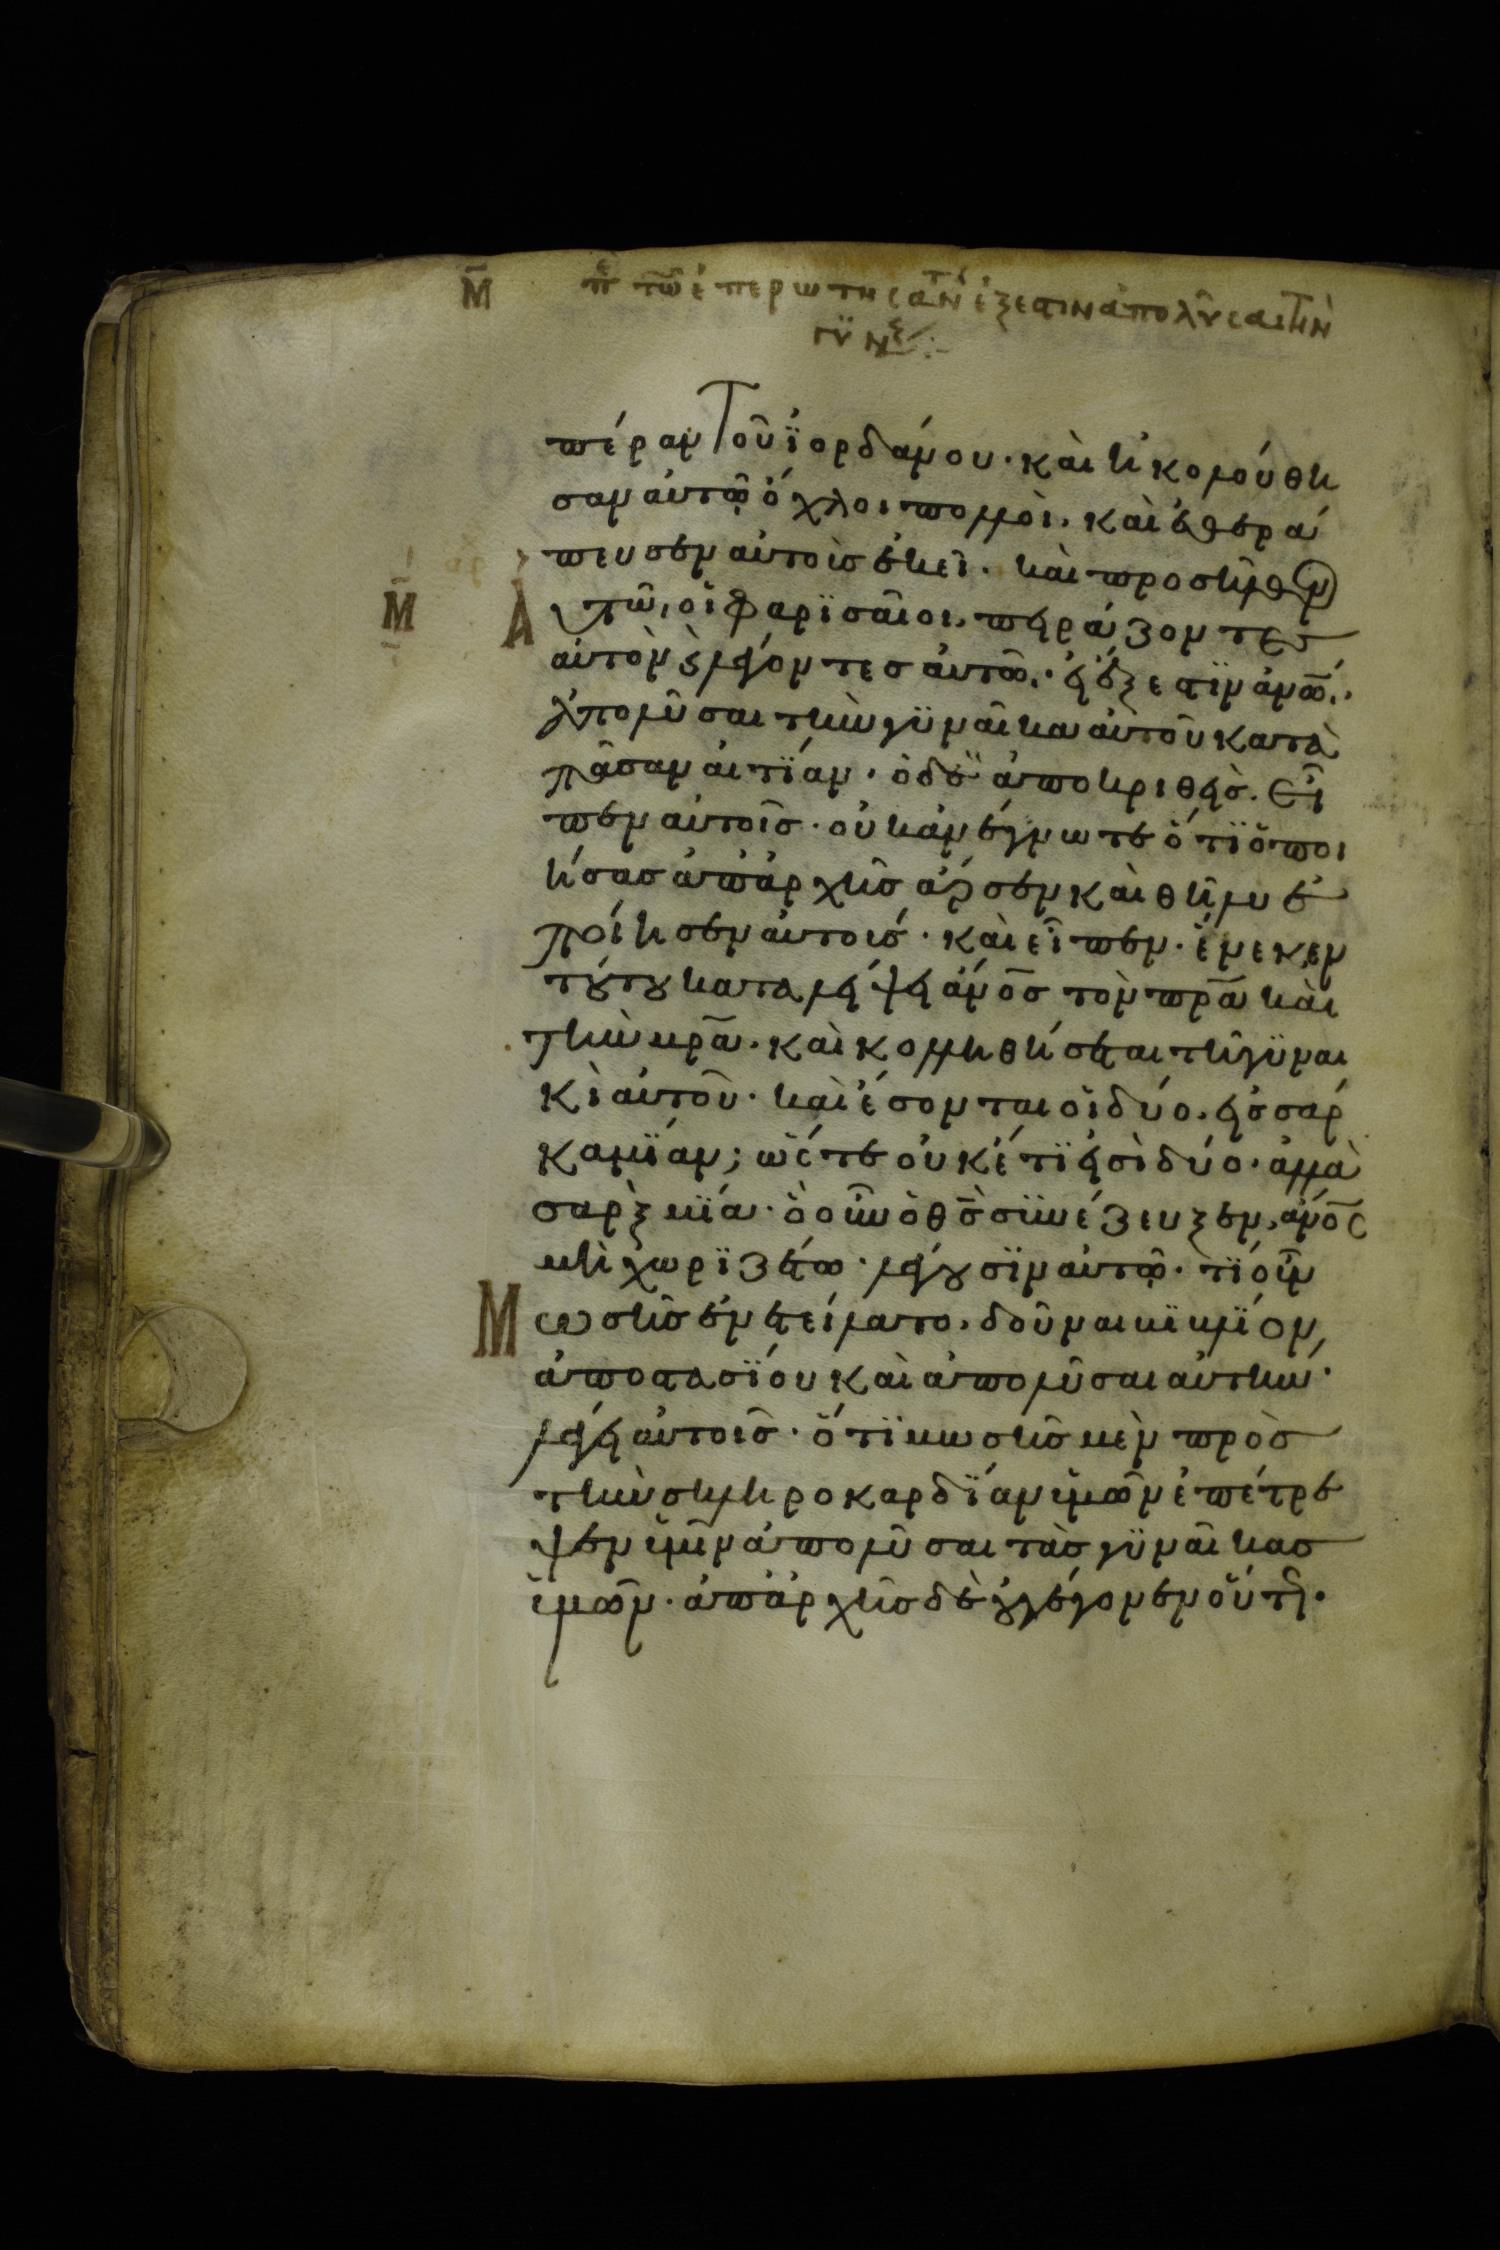 Μ̅ π̅ε̅ τῶ̅ν ἐπερωτησάντ ἔξεστιν ἀπολῦσαι τὴν
γϋν̅:-
πέραν τοῦ ϊορδάνου· καὶ ἠκολούθη
σαν αὐτῶ ὄχλοι πολλοὶ. καὶ ἐθερά
πευσεν αὐτοὺσ ἐκεῖ· καὶ προσῆλθον
Μ̅ Ἀυτῶ, οἱ φαρϊσαῖοι, πειράζοντεσ
αὐτὸν ϗ λέγοντεσ αὐτῶ· εἰ ἔξεστϊν ἀν̅ω̅
ἀπολῦσαι τὴν γϋναῖκα αὐτοῦ κατὰ
πᾶσαν αἰτΐαν· ὁ δὲ ἀποκριθεὶσ. εἶ
πεν αὐτοῖσ· οὐκ ἀνέγνωτε ὅτϊ ὁ ποι
ήσασ ἀπἀρχῆσ ἄρσεν καὶ θῆλυ ἐ
ποίησεν αὐτοὺσ· καὶ εἶπεν· ἕνεκεν
τούτου καταλείψει ἀν̅ο̅σ τὸν πρ̅α̅ καὶ
τὴν μρ̅α̅· καὶ κολληθήσεται τῆ γϋναι
κὶ αὐτοῦ· καὶ ἔσονται οἱ δύο. εἰσ σάρ
κα μΐαν; ὥστε οὐκέτϊ εἰσὶ δύο· ἀλλὰ
σαρὲξ μΐα· ὃ οὖν ὁ θ̅σ̅ σϋνέζευξεν, ἀν̅ο̅σ
μὴ χωρϊζέτω· λέγουσϊν αὐτῶ· τΐ οὖν
Μωσῆσ ἐνετείλατο. δοῦναι βϊβλΐον
ἀποστασΐου καὶ ἀπολῦσαι αὐτὴν·
λέγει αὐτοῖσ· ὅτϊ μωσῆσ μὲν πρὸσ
τὴν σκληροκαρδΐαν ὑμῶν ἐπέτρε
ψεν ὑμῖν ἀπολῦσαι τὰσ γϋναῖκασ
ὑμῶν· ἀπἀρχῆσ δὲ οὐ γέγονεν οὕτω·